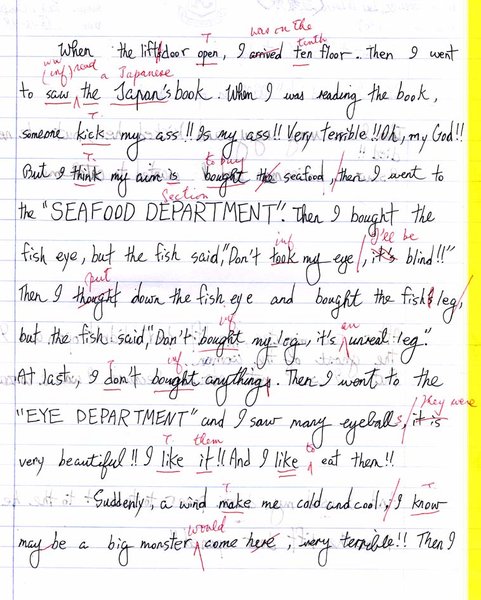 T was on the
When the lift door open, I arrived ten floor. Then I went
tenth
ww (inf) read a Japanese
to saw the Japan's book. When I was reading the book,
T
someone kick my ass!! Is my ass!! Very terrible!! Oh, my God!!
T to buy
But I think my aim is bought the seafood, then I went to
Section
the "SEAFOOD DEPARTMENT". Then I bought the
inf I'll be
fish eye, but the fish said, "Don't took my eye, it's blind!!"
put
Then I thought down the fish eye and bought the fish's leg,
inf an
but the fish said, "Don't bought my leg, it's unreal leg."
T inf
At last, I don't bought anythings. Then I went to the
they were
"EYE DEPARTMENT" and I saw many eyeballs, it is
T them to
very beautiful!! I like it!! And I like eat them!!
T T
Suddenly, a wind make me cold and cool, I know
would
may be a big monster come here, very terrible!! Then I